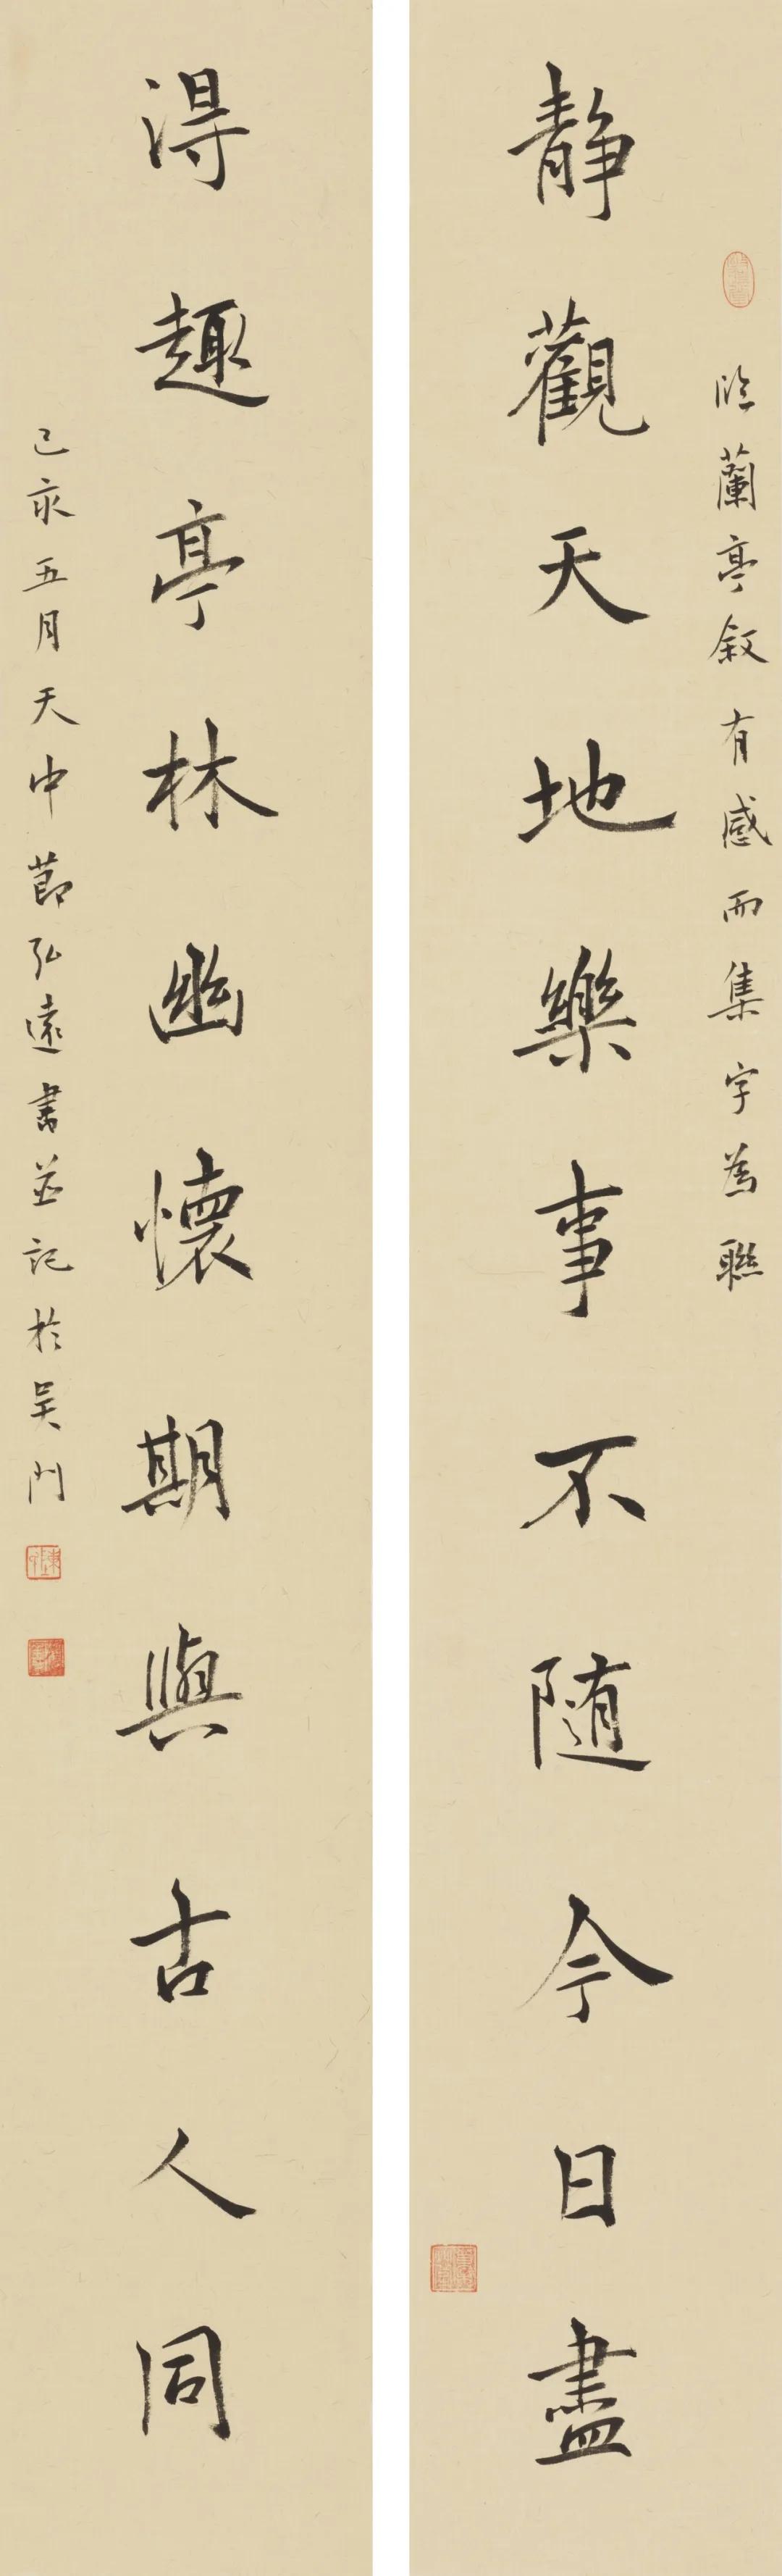 臨蘭亭叙有感而集字為聯
靜觀天地樂事不随今日盡
得趣亭林幽懷期與古人同
己亥五月天中節弘遠書並記於吴門